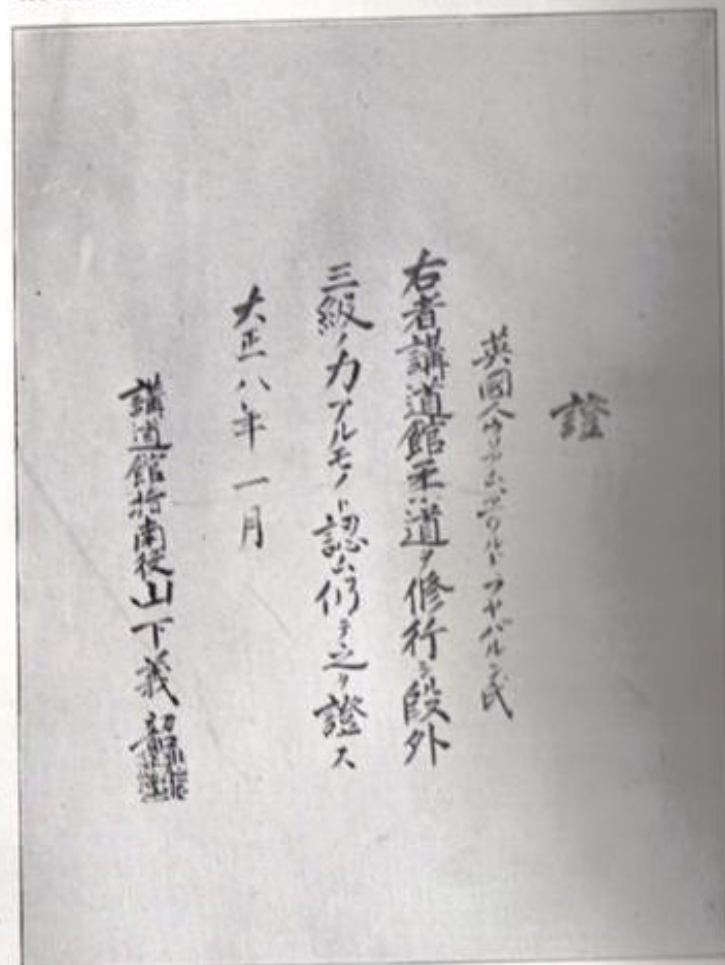 證
英國人ウリヤム、エワルト フヤバルン氏
右者講道館柔道ヲ修行シ段外
三級ノ力アルモノト認ム仍テ之ヲ證ス
大正八年一月
講道館指南役山下義韶